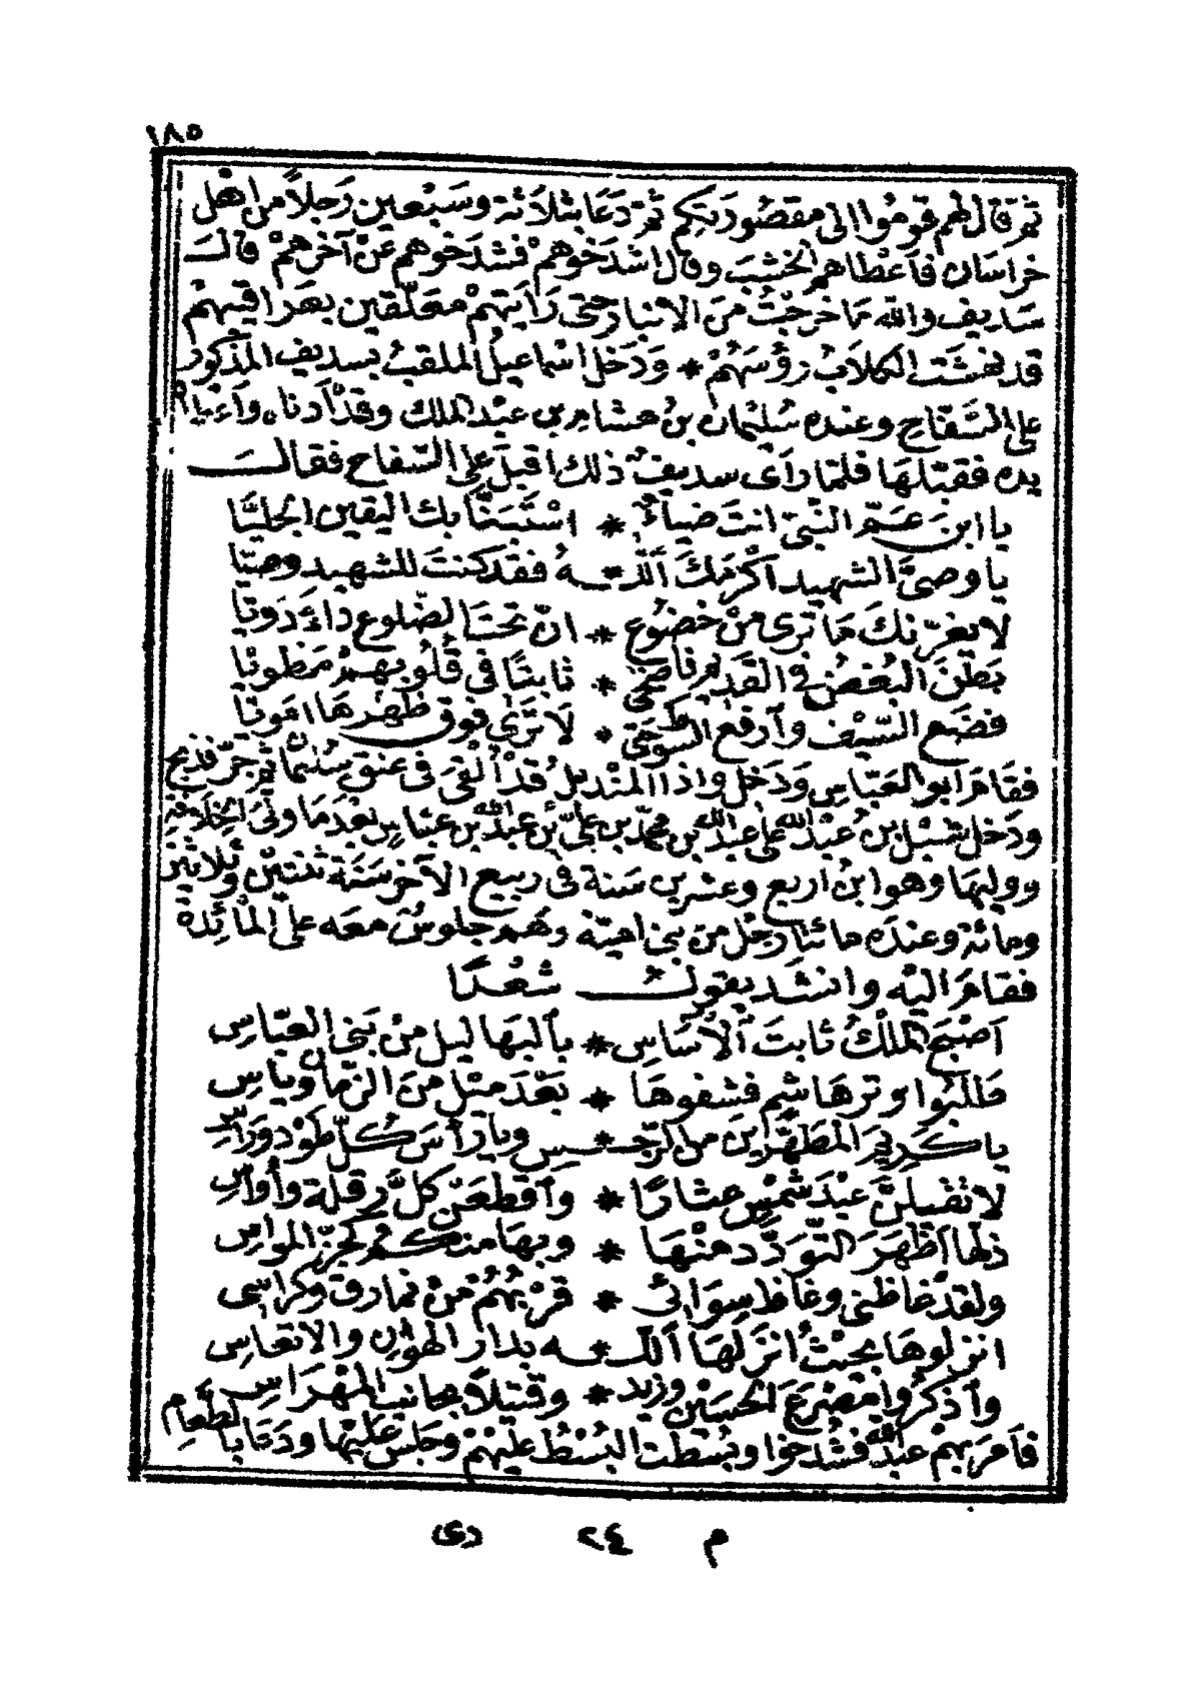 ١٨٥
ثم قال لهم قوموا الى مقصورتكم ثم دعا بثلاثة وسبعين رجلاً من اهل
خراسان فاعطاهم الخشب وقال اشدخوهم فشدخوهم عن آخرهم قال
سديف والله ما خرجت من الانبار حتى رايتهم معلقين بعراقيبهم
قد نهشت الكلاب رؤسهم * ودخل اسماعيل الملقب بسديف المذكور
على السفاح وعنده سليمان بن هشام بن عبد الملك وقد ادناه واعطاه
يده فقبلها فلما راى سديف ذلك اقبل على السفاح فقال
يا ابن عم النبى انت ضياء * استبنا بك اليقين الجليا
يا وصى الشهيد اكرمك اللـه فقد كنت للشهيد وصيا
لا يغرنك ما ترى من خضوع * ان تحت الضلوع داء دويا
بطن البغض فى القديم فاضحى * ثابتا فى قلوبهم مطويا
فضع السيف وارفع السوط حتى * لا ترى فوق ظهرها امويا
فقام ابو العباس ودخل واذا المنديل قد القى فى عنق سليمان ثم جر فذبح
ودخل شبل بن عبد الله على عبد الله بن محمد بن على بن عبد الله بن عباس بعد ما ولى الخلافة
ووليها وهو ابن اربع وعشرين سنة فى ربيع الآخر سنة ثنتين وثلاثين
ومائة وعنده مائتا رجل من بنى امية وهم جلوس معه على المائدة
فقام اليه وانشد يقول شعرا
اصبح الملك ثابت الآساس * بالبهاليل من بنى العباس
طالبوا وترهاشم فشفوها * بعد ميل من الزمان وياس
يا كريم المطهرين من الرجـس ويا راس كل طود وراس
لا تقيلن عبد شمس عثارا * واقطعن كل رقلة واواس
ذلها اظهر التودد منها * وبها منكم كحز المواس
ولقد غاظنى وغاظ سوائى * قربهم من نمارق وكراسى
انزلوها بحيث انزلها اللـه بدار الهوان والاتعاس
واذكروا مصرع الحسين وزيد * وقتيلا بجانب المهراس
فامر بهم عبد الله فشدخوا وبسطت البسط عليهم وجلس عليها ودعا بالطعام
م ٢٤ دى